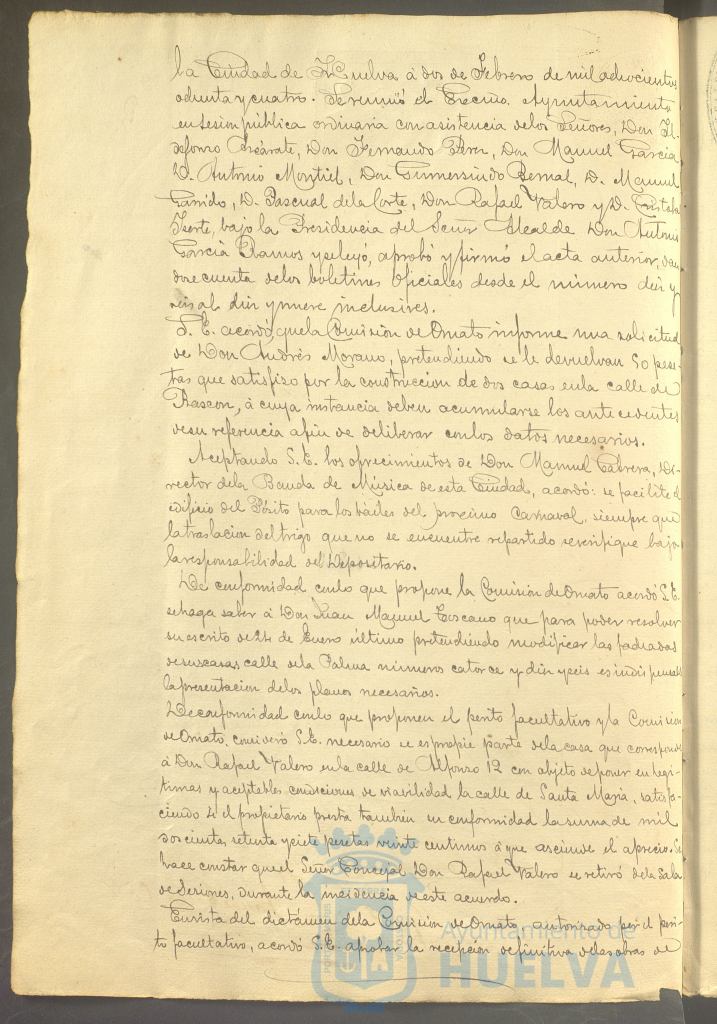 la Ciudad de Huelva á dos de Febrero de mil ochocientos
ochenta y cuatro. Se reunió el Excmo. Ayuntamiento
en sesion pública ordinaria con asistencia de los Señores, Don Il-
defonso Azcárate, Don Fernando Perez, Don Manuel Garcia
D. Antonio Montiel, Don Gumersindo Bernal, D. Manuel
Garrido, D. Pascual de la Corte, Don Rafael Valero y D. Cristobal
bajo la Presidencia del Señor Alcalde Don Antonio
Garcia Ramos y se leyó, aprobó y firmó el acta anterior, dan
dose cuenta de los boletines Oficiales desde el número diez y
seis al diez y nueve inclusives.
S. E. acordó, que la Comisión de Ornato informe una solicitud
de Don Andrés Morano, pretendiendo se le devuelvan 50 pese-
tas que satisfizo por la construccion de dos casas en la calle de
Rascon, á cuya instancia deben acumularse los antecedentes
de su referencia afin de deliberar con los datos necesarios.
Aceptando S. E. los ofrecimientos de Don Manuel Cabrera, Di-
rector de la Banda de Música de esta Ciudad, acordó: se facilite el
edificio del Pósito para los bailes del proximo Carnaval, siempre que
la traslacion del trigo que no se encuentre repartido se verifique bajo
la responsabilidad del Depositario.
De conformidad con lo que propone la Comisión de Ornato acordó S. E.
se haga saber á Don Juan Manuel Toscano que para poder resolver
su escrito de 24 de Enero último pretendiendo modificar las fachadas
de sus casas calle de la Palma números catorce y diez y seis es indispensable
la presentacion de los planos necesarios.
De conformidad con lo que proponen el perito facultativo y la Comision
de Ornato, consideró S. E. necesario se espropie parte de la casa que corresponde
á Don Rafael Valero en la calle de Alfonso 12 con objeto de poner en legí-
timas y aceptables condiciones de viabilidad la calle de Santa Maria, satisfa-
ciendo á el propietario presta tambien su conformidad la suma de mil
doscientas setenta y siete pesetas veinte centimos á que asciende el aprecio. Se
hace constar que el Señor Concejal Don Rafael Valero se retiró de la Sala
de Sesiones, durante la incidencia de este acuerdo.
En vista del dictámen de la Comisión de Ornato autorizado por el peri-
to facultativo, acordó S. E. aprobar la recepcion definitiva de las obras de
Ayuntamiento de
HUELVA